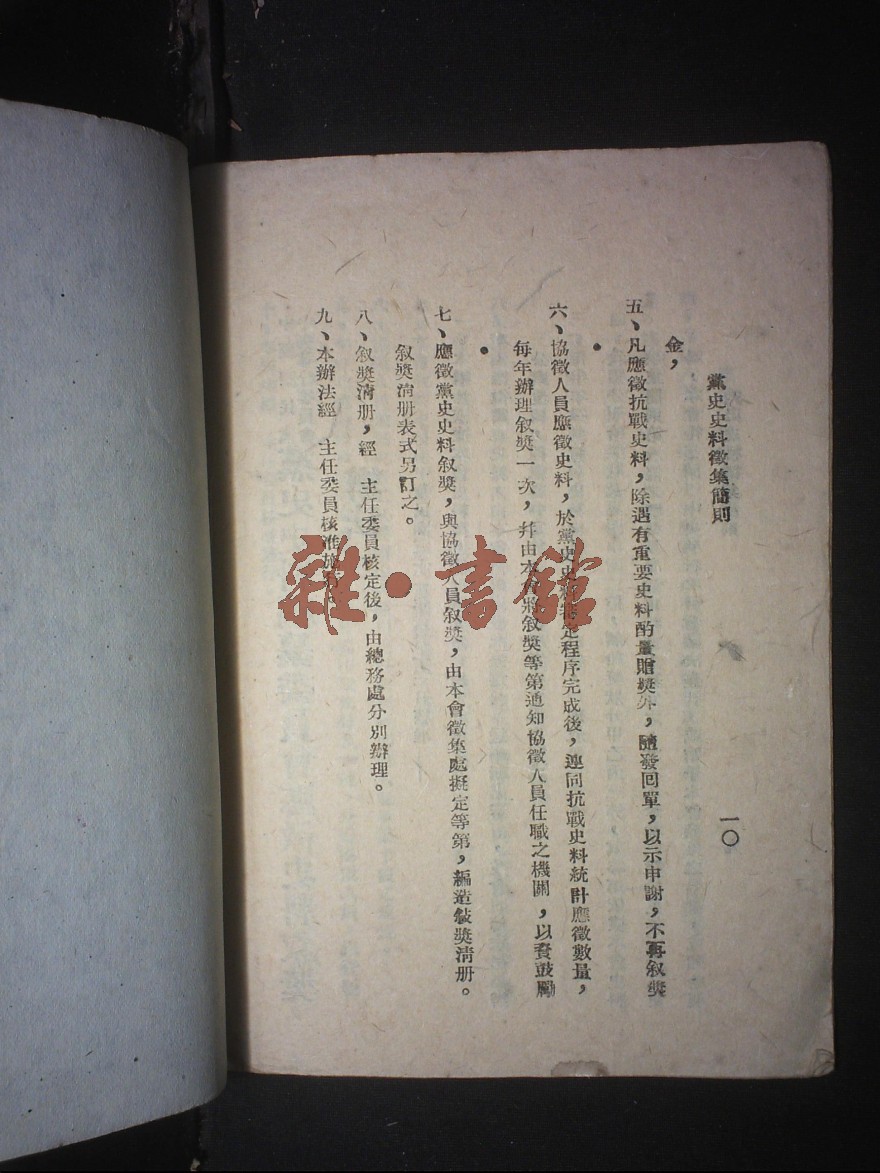 黨史史料徵集簡則
一〇
金,
五、凡應徵抗戰史料,除遇有重要史料酌量贈獎外,隨發回單,以示申謝,不再叙獎
。
六、協徵人員應徵史料,於黨史史料 定程序完成後,連同抗戰史料統計應徵數量,
每年辦理叙獎一次,幷由本 將叙獎等第通知協徵人員任職之機關,以資鼓勵
。
七、應徵黨史史料叙獎,與協徵人員叙獎,由本會徵集處擬定等第,編造敍獎清册。
叙獎清册表式另訂之。
八、叙獎清册,經 主任委員核定後,由總務處分別辦理。
九、本辦法經 主任委員核准施 。
雜·書館